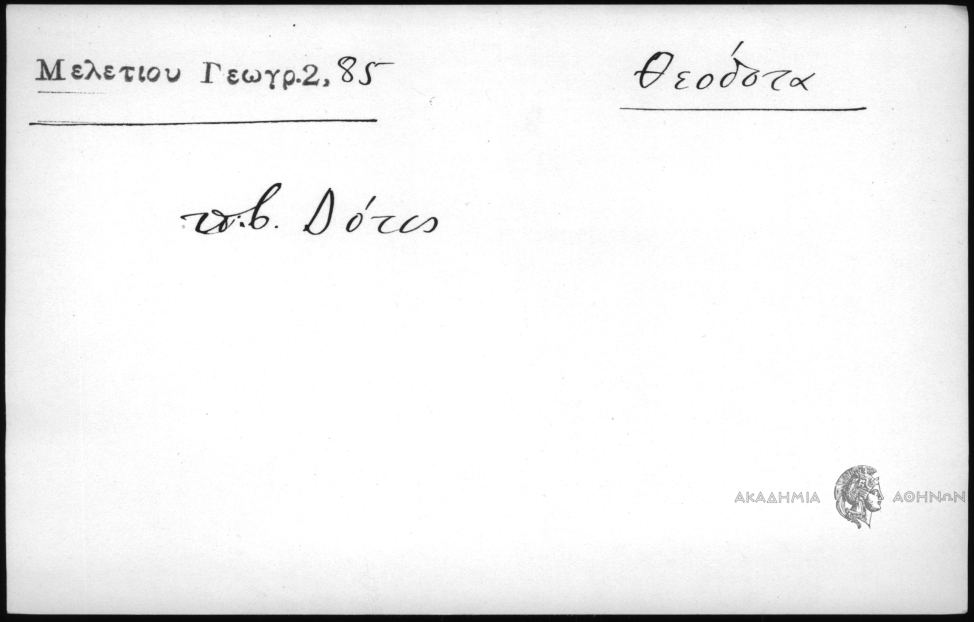 Μελετίου Γεωγρ.2, 85
Θεόδοτα
π.β. Δότις
ΑΚΑΔΗΜΙΑ ΑΘΗΝΩΝ